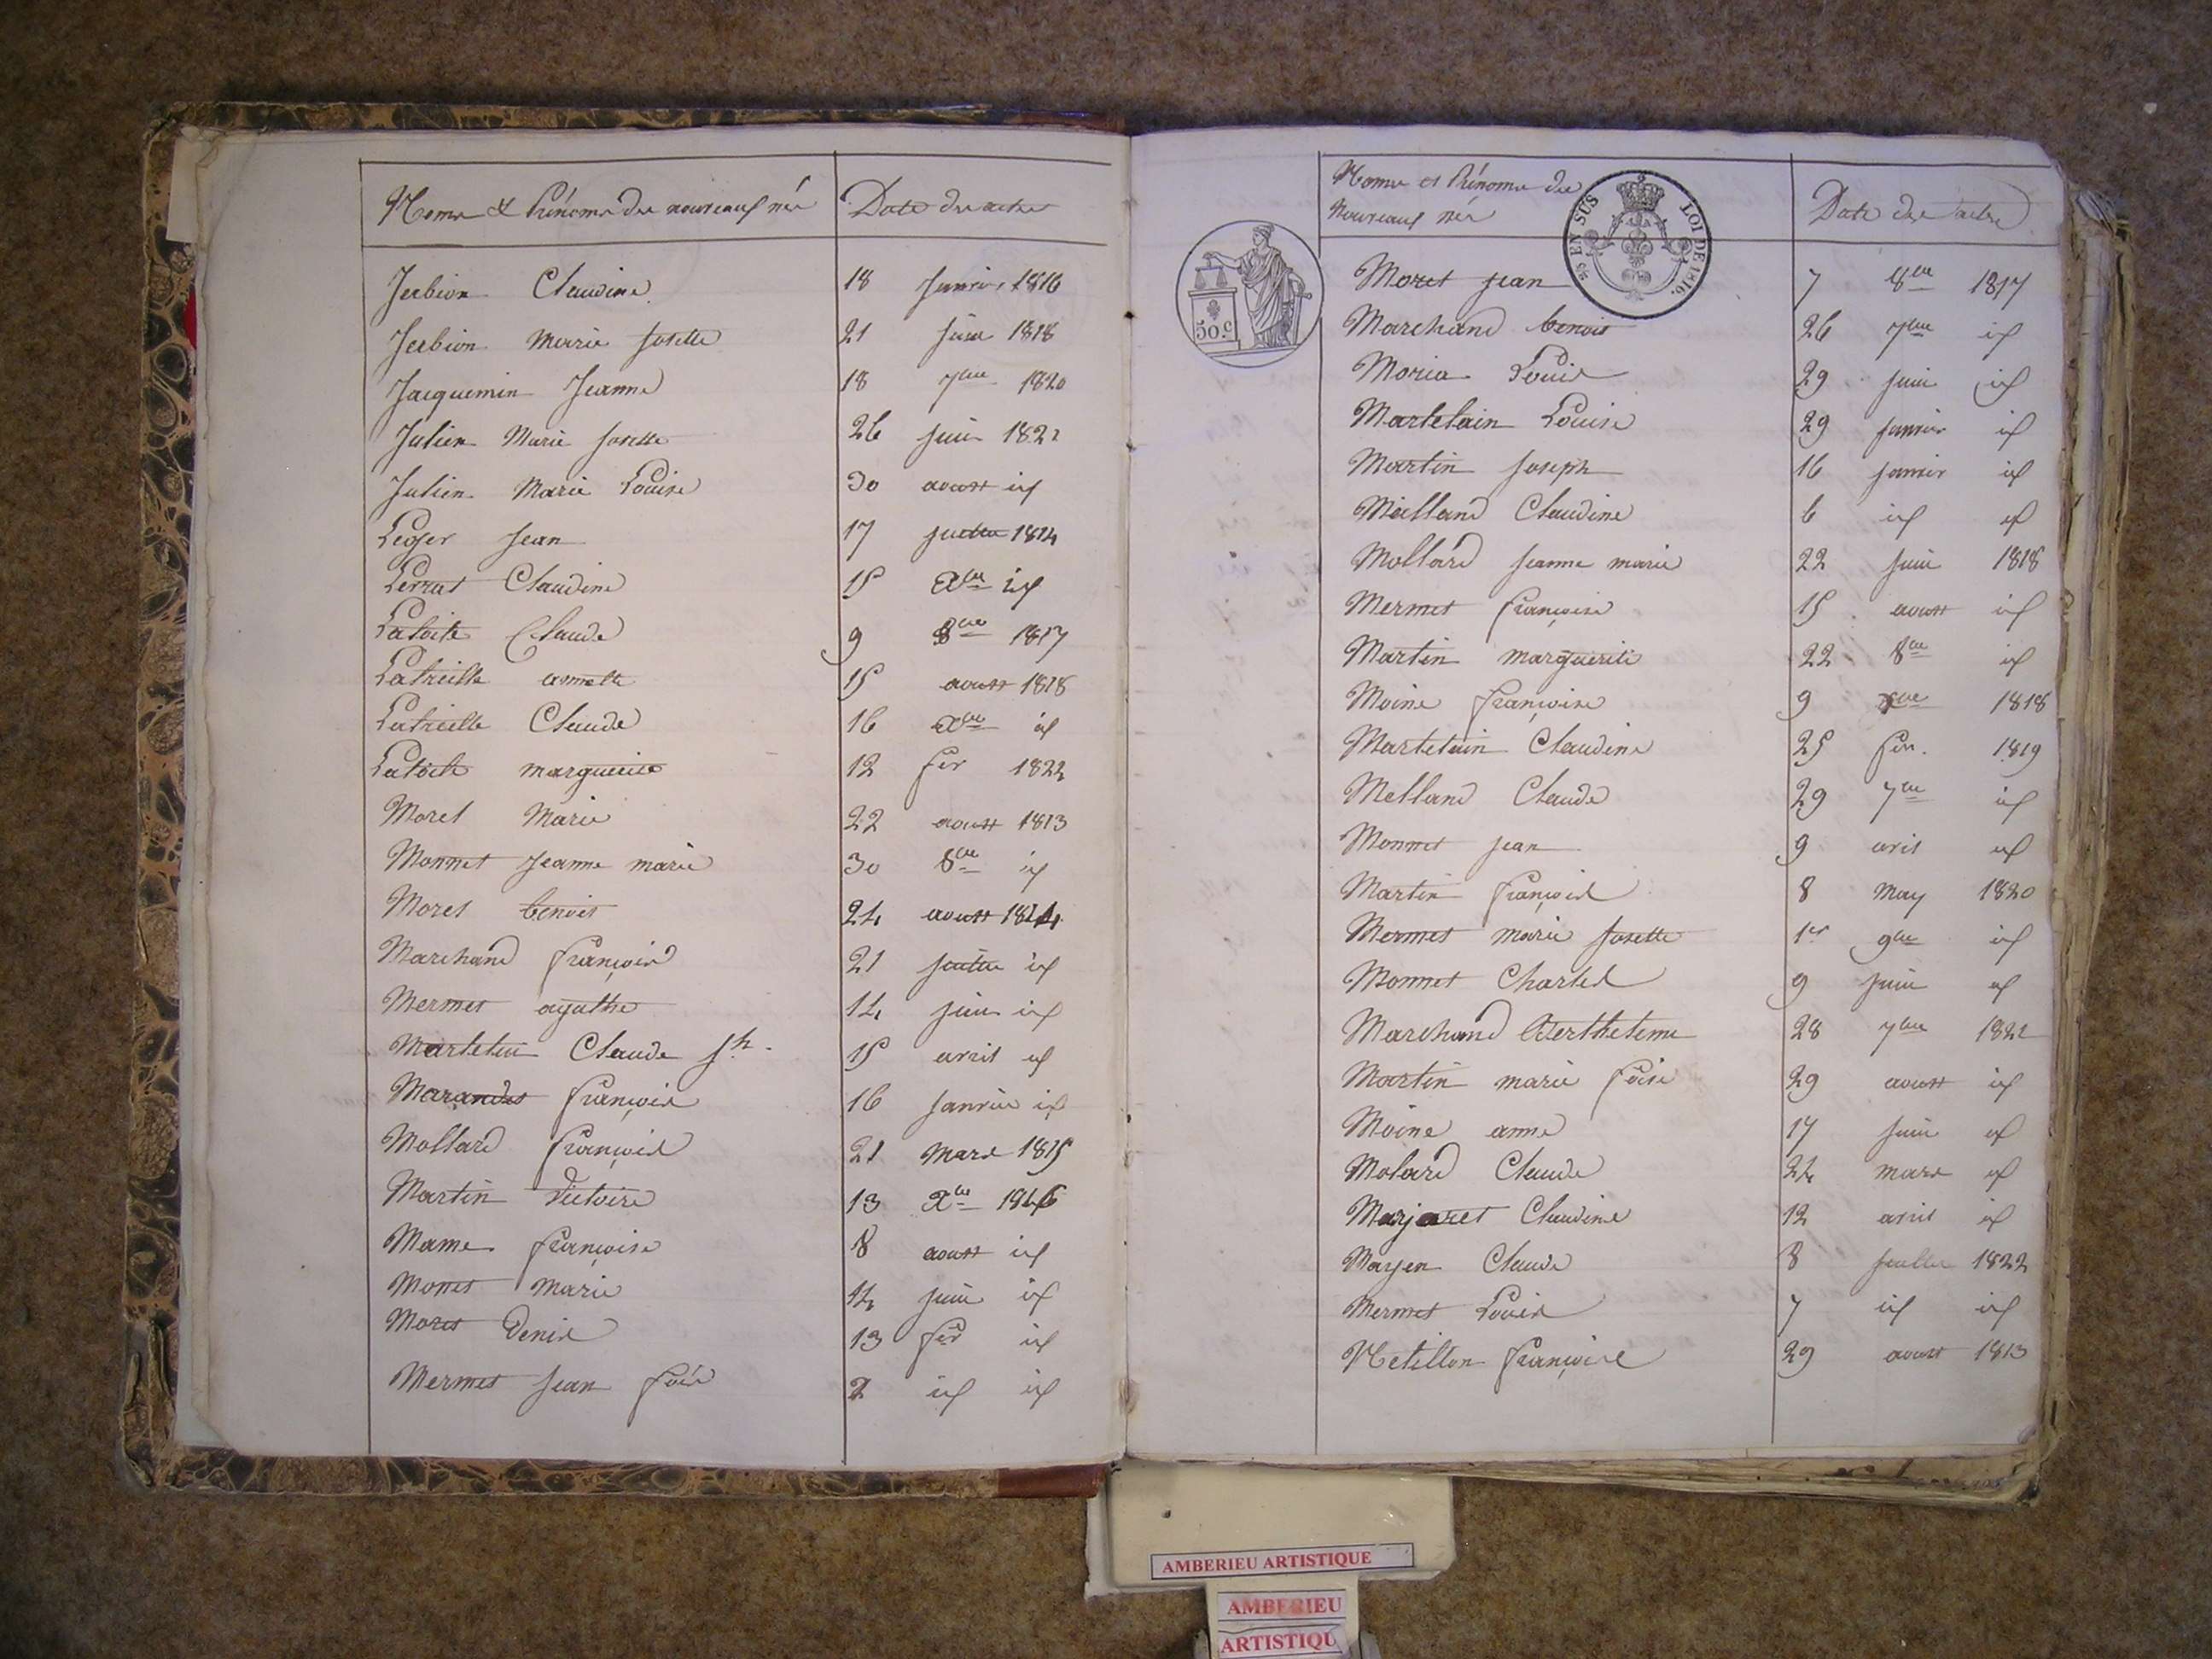 Noms & Prénoms des nouveaux nés Date des actes
Jerbion Claudine 18 Janvier 1816
Jerbion Marie Josette 21 Juin 1818
Jacquemin Jeanne 18 7bre 1820
Julien Marie Josette 26 Juin 1821
Julien Marie Louise 30 aoust id
Leger Jean 17 Juillet 1814
Perrat Claudine 15 Xbre id
Claude 9 8bre 1817
Latreille annette 15 aoust 1818
Latreille Claude 16 Xbre id
marguerite 12 fer 1822
Morel Marie 22 aoust 1813
Monnet Jeanne marie 30 8bre id
Morel benoit 24 aoust 1814
Marchand françois 21 Juillet id
Mermet agathe 14 Juin id
Martelin Claude Jh 15 avril id
françois 16 Janvier id
Mollard françois 21 Mars 1815
Martin Victoire 13 Xbre 1816
Mame françoise 8 aoust id
Monet Marie 14 Juin id
Moret Denis 13 fer id
Mermet Jean fois 2 id id
Noms et Prénoms des
nouveaux nés Date des actes
25 EN SUS LOI DE 1816.
50.c
Moret Jean 7 8bre 1817
Marchand benoit 26 7bre id
Moria Louis 29 Juin id
Martelain Louise 29 Janvier id
Martin Joseph 16 Janvier id
Milland Claudine 6 id id
Mollard Jeanne marie 22 Juin 1818
Mermet françoise 15 aoust id
Martin marguerite 22 8bre id
Moine françoise 9 1818
Martelain Claudine 25 fer. 1819
Melland Claude 29 7bre id
Monnet Jean 9 avril id
Martin françois 8 May 1820
Mermet marie Josette 1er 9bre id
Monnet Charles 9 Juin id
Marchand Berthelemi 28 7bre 1821
Martin marie foise 29 aoust id
Moine anne 17 Juin id
Molard Claude 24 mars id
Marjaret Claudine 12 avril id
Mayen Claude 8 Juillet 1822
Mermet Louis 7 id id
Metillon françoise 29 aoust 1813
AMBERIEU ARTISTIQUE
AMBERIEU
ARTISTIQU